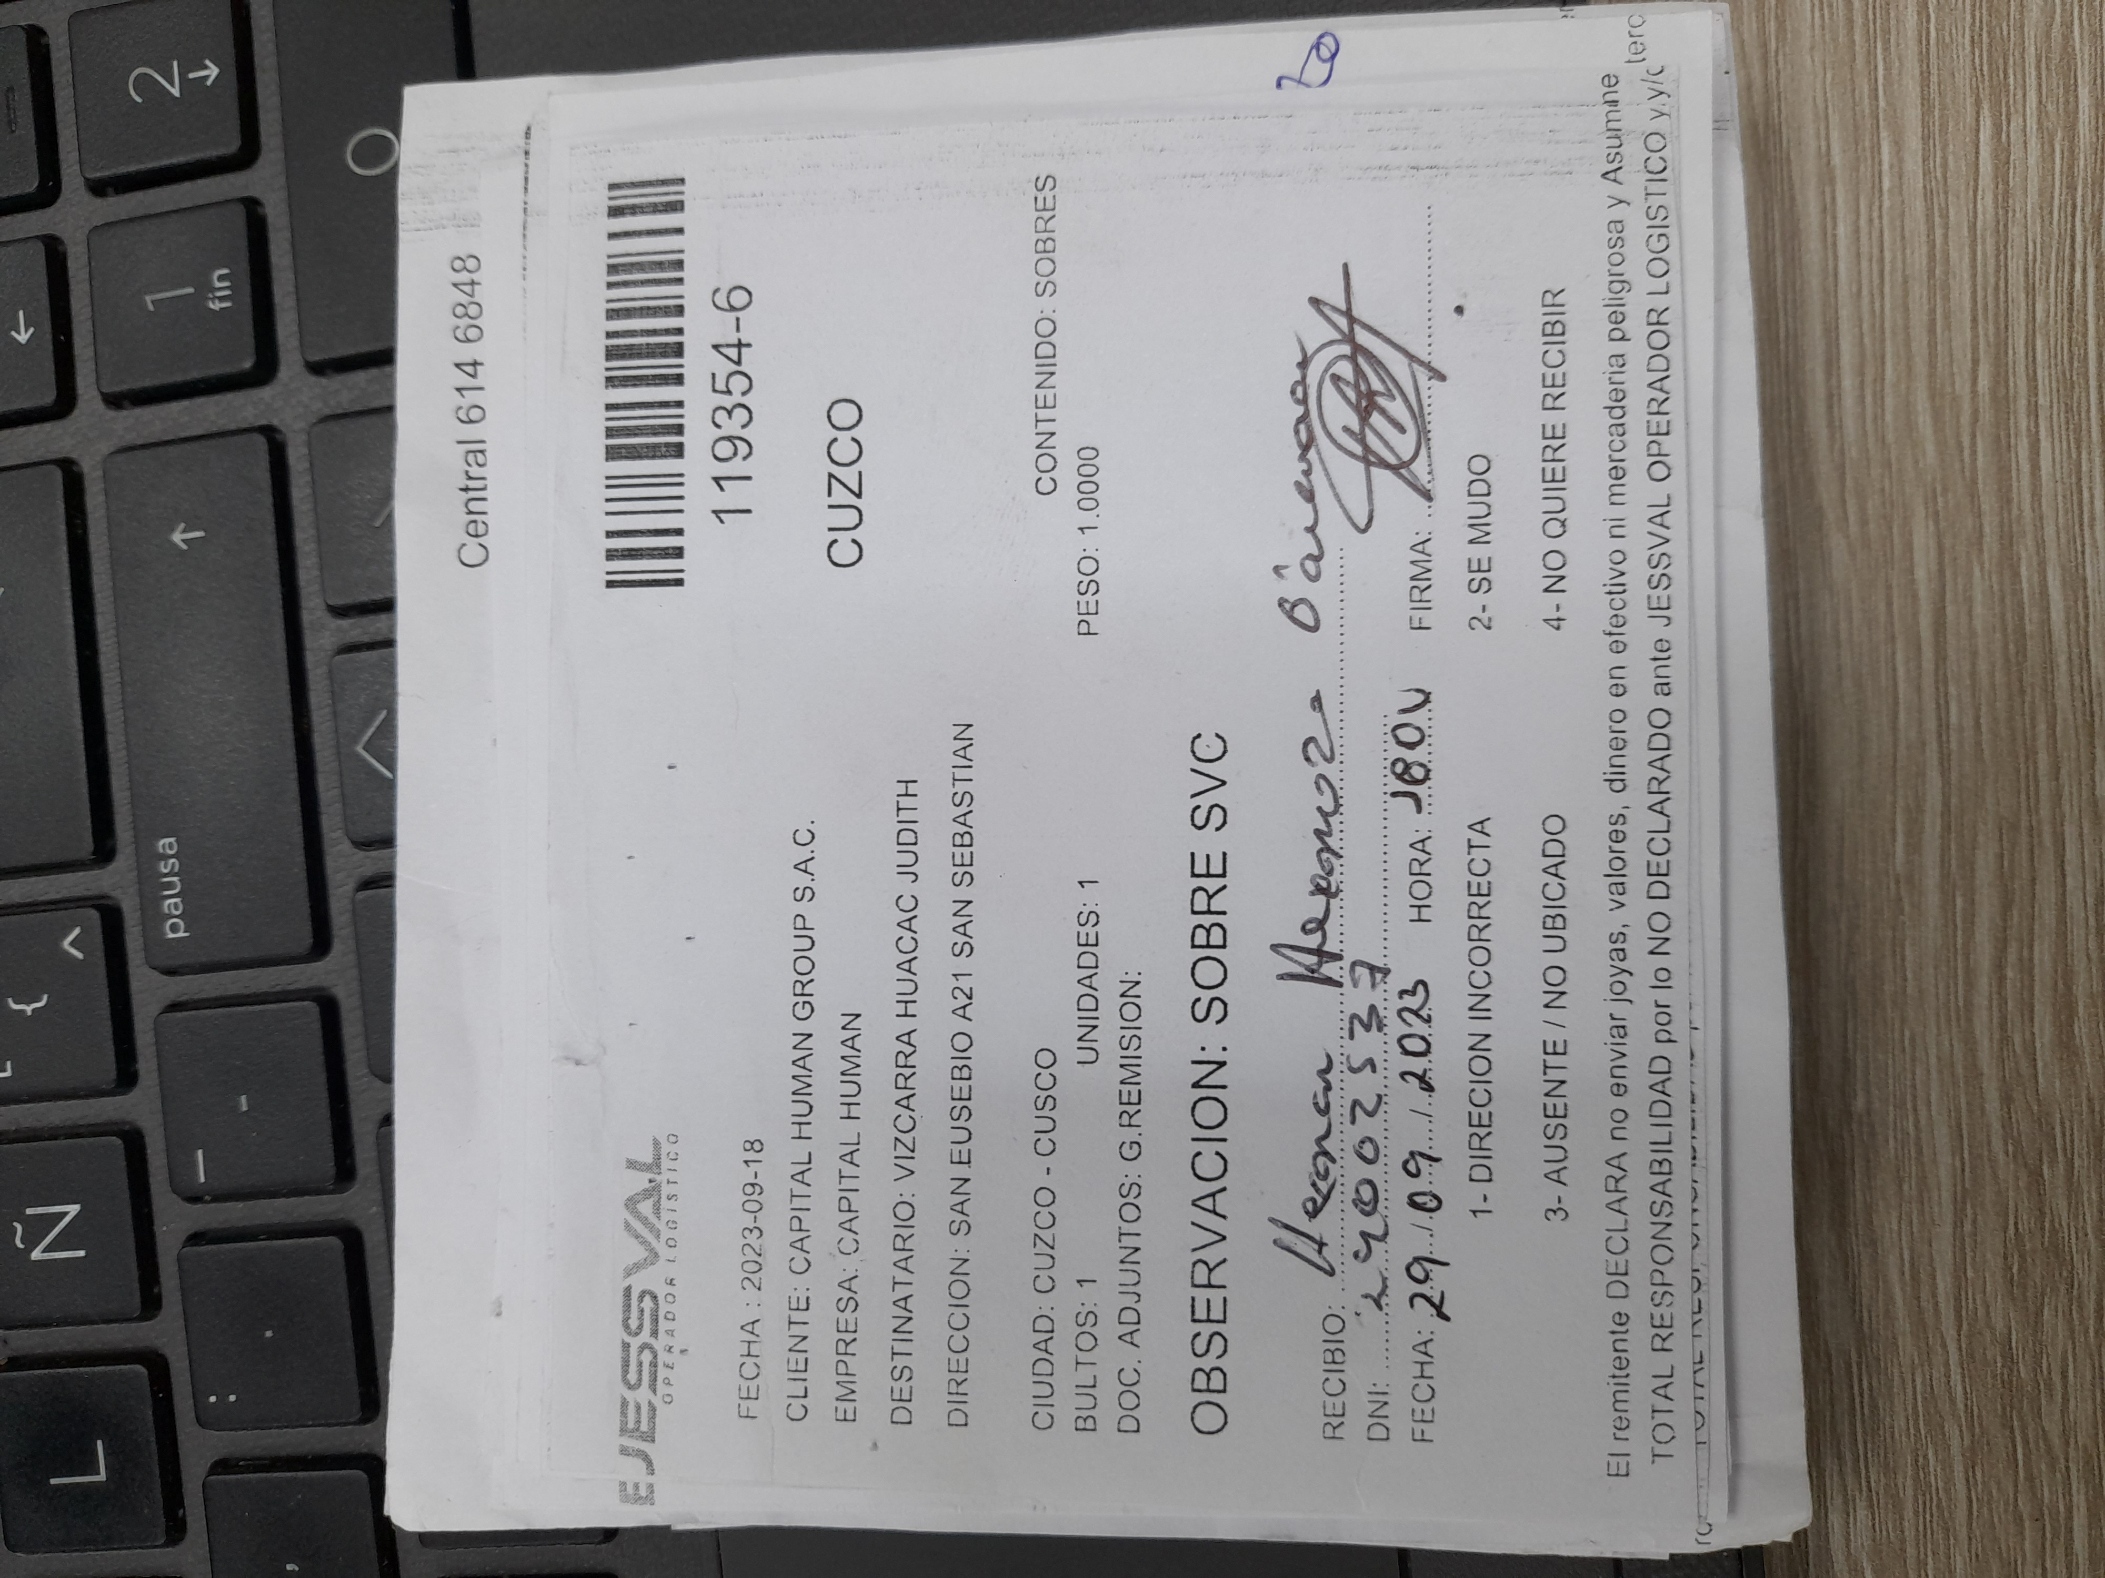 L
Ñ
{
^
←
pausa
↑
1
fin
2
↓
:
.
-
,
0
Central 614 6848
EJESSVAL
OPERADOR LOGISTICO
119354-6
FECHA : 2023-09-18
CLIENTE: CAPITAL HUMAN GROUP S.A.C.
EMPRESA: CAPITAL HUMAN
CUZCO
DESTINATARIO: VIZCARRA HUACAC JUDITH
DIRECCION: SAN EUSEBIO A21 SAN SEBASTIAN
CIUDAD: CUZCO - CUSCO CONTENIDO: SOBRES
BULTOS: 1 UNIDADES: 1 PESO: 1.0000
DOC. ADJUNTOS: G.REMISION:
OBSERVACION: SOBRE SVC
RECIBIO: Hernan Hermoza
DNI: 24002537
FECHA: 29/09/2023 HORA: 1800 FIRMA:
1- DIRECION INCORRECTA 2- SE MUDO
3- AUSENTE / NO UBICADO 4- NO QUIERE RECIBIR
El remitente DECLARA no enviar joyas, valores, dinero en efectivo ni mercaderia peligrosa y Asume
TOTAL RESPONSABILIDAD por lo NO DECLARADO ante JESSVAL OPERADOR LOGISTICO y